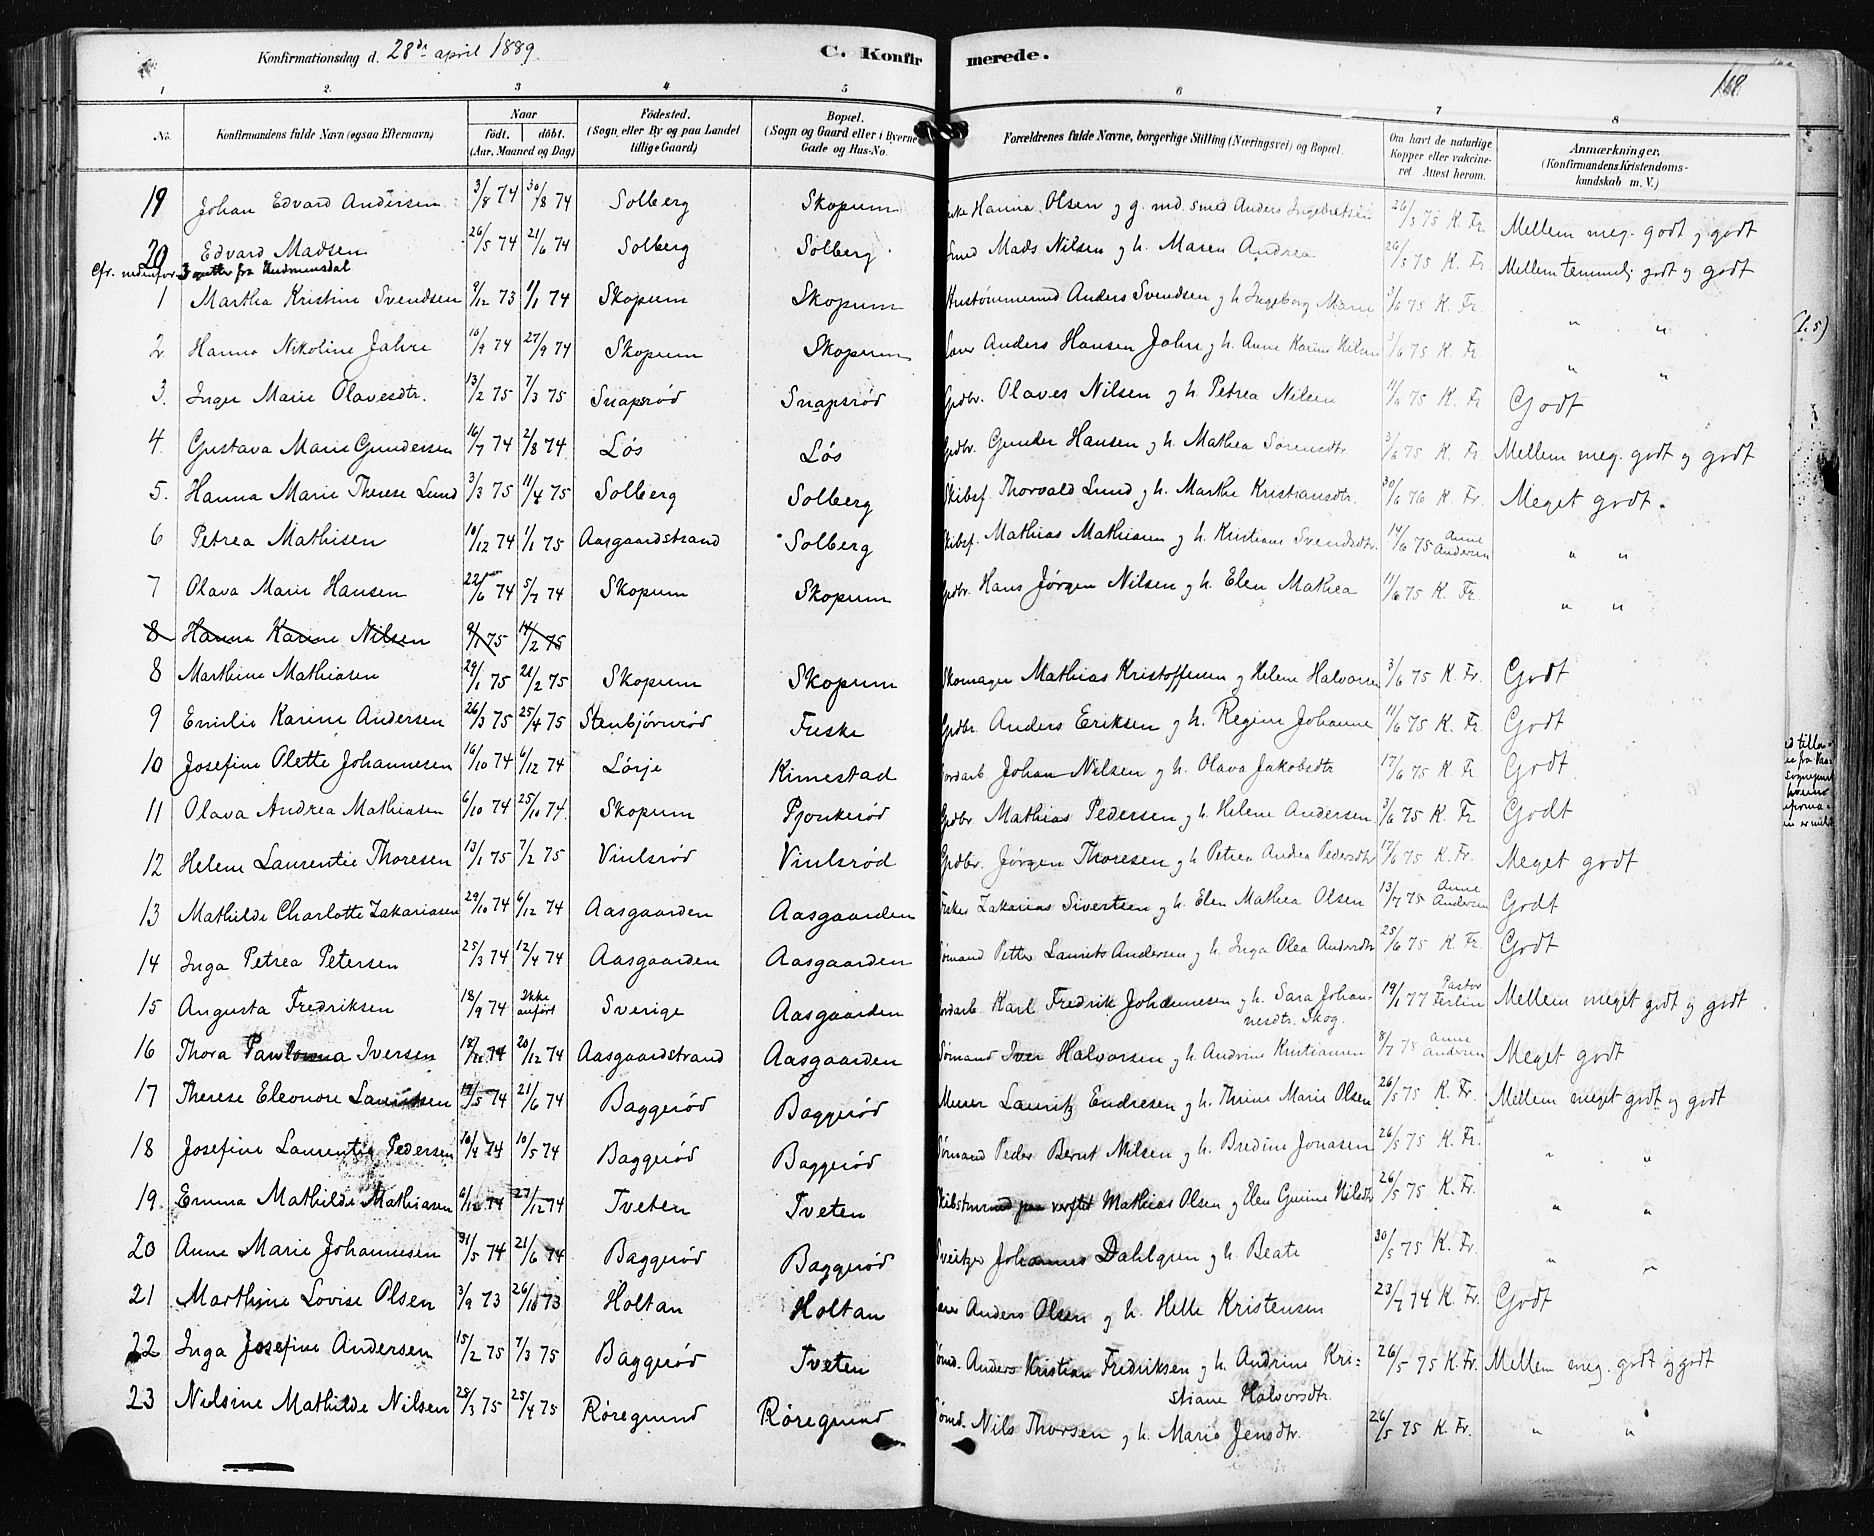 Konfirmationsdag d. 28de april 1889.
C. Konfirmerede.
168
1 2. 3 4 5 6 7 8
No. Konfirmandens fulde Navn (ogsaa Efternavn) Naar født. døbt. (Aar, Maaned og Dag) Fødested. (Sogn eller By og paa Landet tillige Gaard) Bopæl. (Sogn og Gaard eller i Byerne Gade og Hus-No. Forældrenes fulde Navne, borgerlige Stilling (Næringsvei) og Bopæl. Om havt de naturlige Kopper eller vakcineret. Attest herom. Anmærkninger, (Konfirmandens Kristendomskundskab m. V.)
19 Johan Edvard Andersen 3/8 74 30/8 74 Solberg Skopum Hanna Olsen g g. md. smed Anders Ingebretsen 26/5 75 K. Fr. Mellem meg. godt g godt
20 Edvard Madsen 26/5 74 21/6 74 Solberg Solberg Smed Mads Nilsen g h. Maren Andrea 26/5 75 K. Fr. Mellem temmeli godt g godt
Cfr. nedenfor 3 gutter fra
1 Martha Kristine Svendsen 9/12 73 1/1 74 Skopum Skopum Hustømmermd Anders Svendsen g h Ingeborg Marie 3/6 75 K. Fr. " "
2. Hanna Nikoline Jahre 10/9 74 27/9 74 Skopum Skopum Anders Hansen Jahre g h. Anne Karine Nilsen 3/6 75 K. Fr. " "
3. Inger Marie Olavesdtr. 13/2 75 7/3 75 Snapsrød Snapsrød Grdbr. Olaves Nilsen g h Petrea Nilsen 11/6 75 K. Fr Godt
4. Gustava Marie Gundersen 16/7 74 2/8 74 Løs Løs Grdbr. Gunder Hansen g h. Mathea Sørensdtr 3/6 75 K. Fr. Mellem meg. godt g godt
5. Hanna Marie Therese Lund 3/3 75 11/4 75 Solberg Solberg Skibsf. Thorvald Lund g h. Marthe Kristiansdtr. 30/6 76 K. Fr. Meget godt.
6 Petrea Mathisen 10/12 74 1/1 75 Aasgaardstrand Solberg Skibsf. Mathias Mathiasen g h. Kristiane Svendsdtr. 14/6 75 Anne Andersen " "
7 Olava Marie Hansen 22/6 74 5/7 74 Skopum Skopum Grdbr. Hans Jørgen Nilsen g h. Elen Mathea 11/6 75 K. Fr. " "
8 Hanna Karine Nilsen 9/1 75 14/2 75
8 Marthine Mathiasen 29/1 75 21/2 75 Skopum Skopum Skomager Mathias Kristoffersen g Helene Halvorsen 3/6 75 K. Fr. Godt
9 Emilie Karine Andersen 26/3 75 25/4 75 Stenbjørnrød Fuske Grdbr. Anders Eriksen g h. Regine Johanne 11/6 75 K. Fr. Godt
10 Josefine Olette Johannesen 16/10 74 6/12 74 Lørje Kimestad Jordarb Johan Nilsen g h. Olava Jakobsdtr 17/6 75 K. Fr Godt
11 Olava Andrea Mathiasen 6/10 74 25/10 74. Skopum Pjonkerød Grdbr Mathias Pedersen g h. Helene Andersen 3/6 75 K. Fr Godt
12 Helene Laurentie Thoresen 13/1 75 7/2 75 Viulsrød Viulsrød Grdbr. Jørgen Thoresen g h Petrea Andrea Pedersdtr 17/6 75 K. Fr. Meget godt
13 Mathilde Charlotte Zakariasen 29/10 74 6/12 74 Aasgaarden Aasgaarden Fisker Zakarias Sivertsen g h. Elen Mathea Olsen 13/7 75 Anne Andersen Godt
14 Inga Petrea Petersen 25/3 74 12/4 74 Aasgaarden Aasgaarden Sømand Petter Laurits Andersen g h. Inga Olea Andersdtr 25/6 75 K. Fr. Godt
15 Augusta Fredriksen 18/9 74 Ikke anført Sverige Aasgaarden Jordarb. Karl Fredrik Johannesen g h. Sara Johan-
nesdtr. Skog. 19/1 77 Pastor Ferlin Mellem meget godt g godt.
16 Thora Paulowna Iversen 18/11 74 20/12 74 Aasgaardstrand Aasgaarden Sømand Iver Halvorsen g h. Andrine Kristiansen 8/7 78 Anne Andersen Meget godt
17 Therese Eleonore Lauritsen 17/5 74 21/6 74 Baggerød Baggerød Murer Lauritz Endresen g h. Thrine Marie Olsen 26/5 75 K. Fr. Mellem meget godt g godt
18 Josefine Laurentie Pedersen 10/4 74 10/5 74 Baggerød Baggerød Sømand Peder Bernt Nilsen g h. Bredine Jonasen 26/5 75 K. Fr. " "
19. Emma Mathilde Mathiasen 6/12 74 27/12 74 Tveten Tveten Skibstmrmd paa verftet Mathias Olsen g Elen Gurine Nilsdtr 26/5 75 K. Fr. " "
20 Anne Marie Johannesen 31/5 74 21/6 74 Baggerød Baggerød Sveitzer Johannes Dahlgren g h. Beate 30/5 75 K. Fr. " "
21 Marthine Lovise Olsen 3/9 73 26/10 73 Holtan Holtan Anders Olsen g h Helle Kristensen 23/7 74 K. Fr. Godt
22 Inga Josefine Andersen 15/2 75 7/3 75 Baggerød Tveten Sømd. Anders Kristian Fredriksen g h. Andrine Kri=
stiane Halvorsdtr. 26/5 75 K. Fr. Mellem meg. godt g godt
23 Nielsine Mathilde Nilsen 28/3 75 25/4 75 Røregrund Røregrund Sømd. Nils Thorsen g h. Marie Jensdtr. 26/5 75 K. Fr. " "